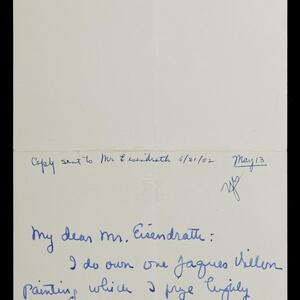 Copy sent to Mr Eisendrath 6/21/52 May 13
My dear Mr. Eisendrath:
I do own one Jaques Villon
painting which I prize highly